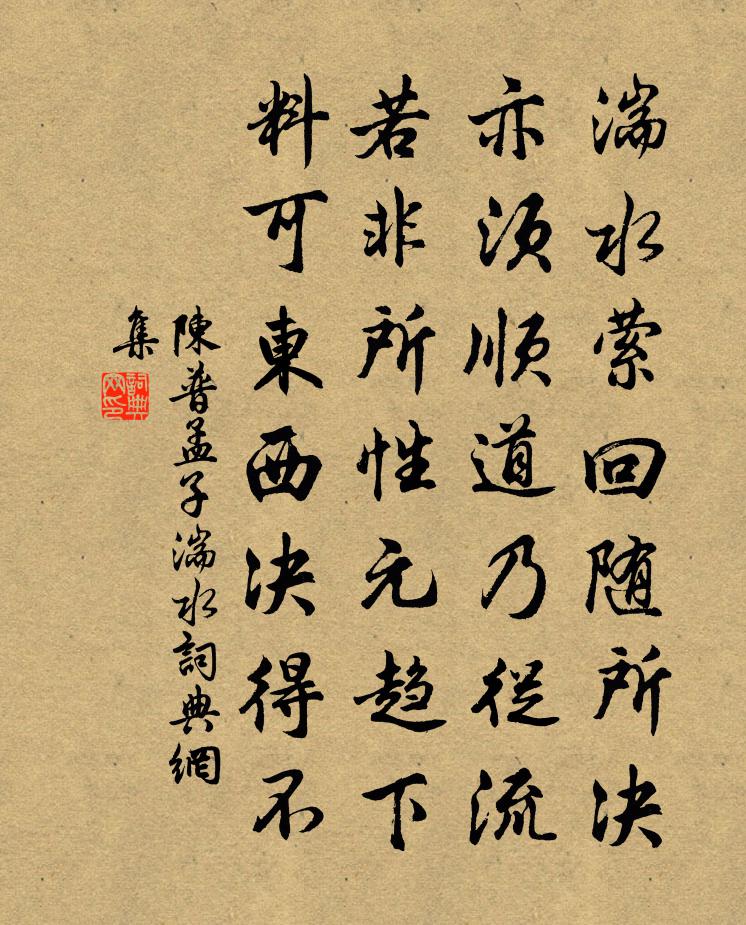 湍水萦回随所决
亦须顺道乃從流
若非所性元趋下
料可東西决得不
陳普孟子湍水詞典網
集
詞典
网印